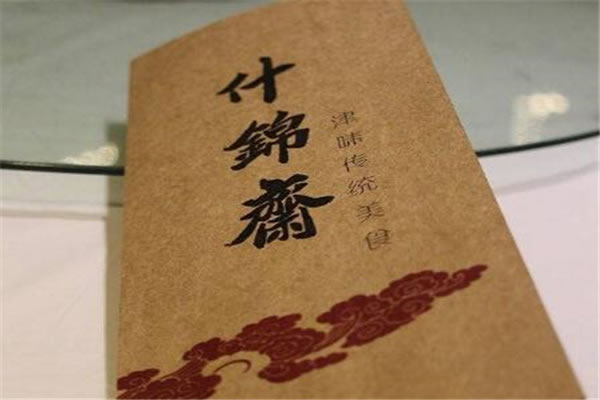 什錦齋
津味传统美食